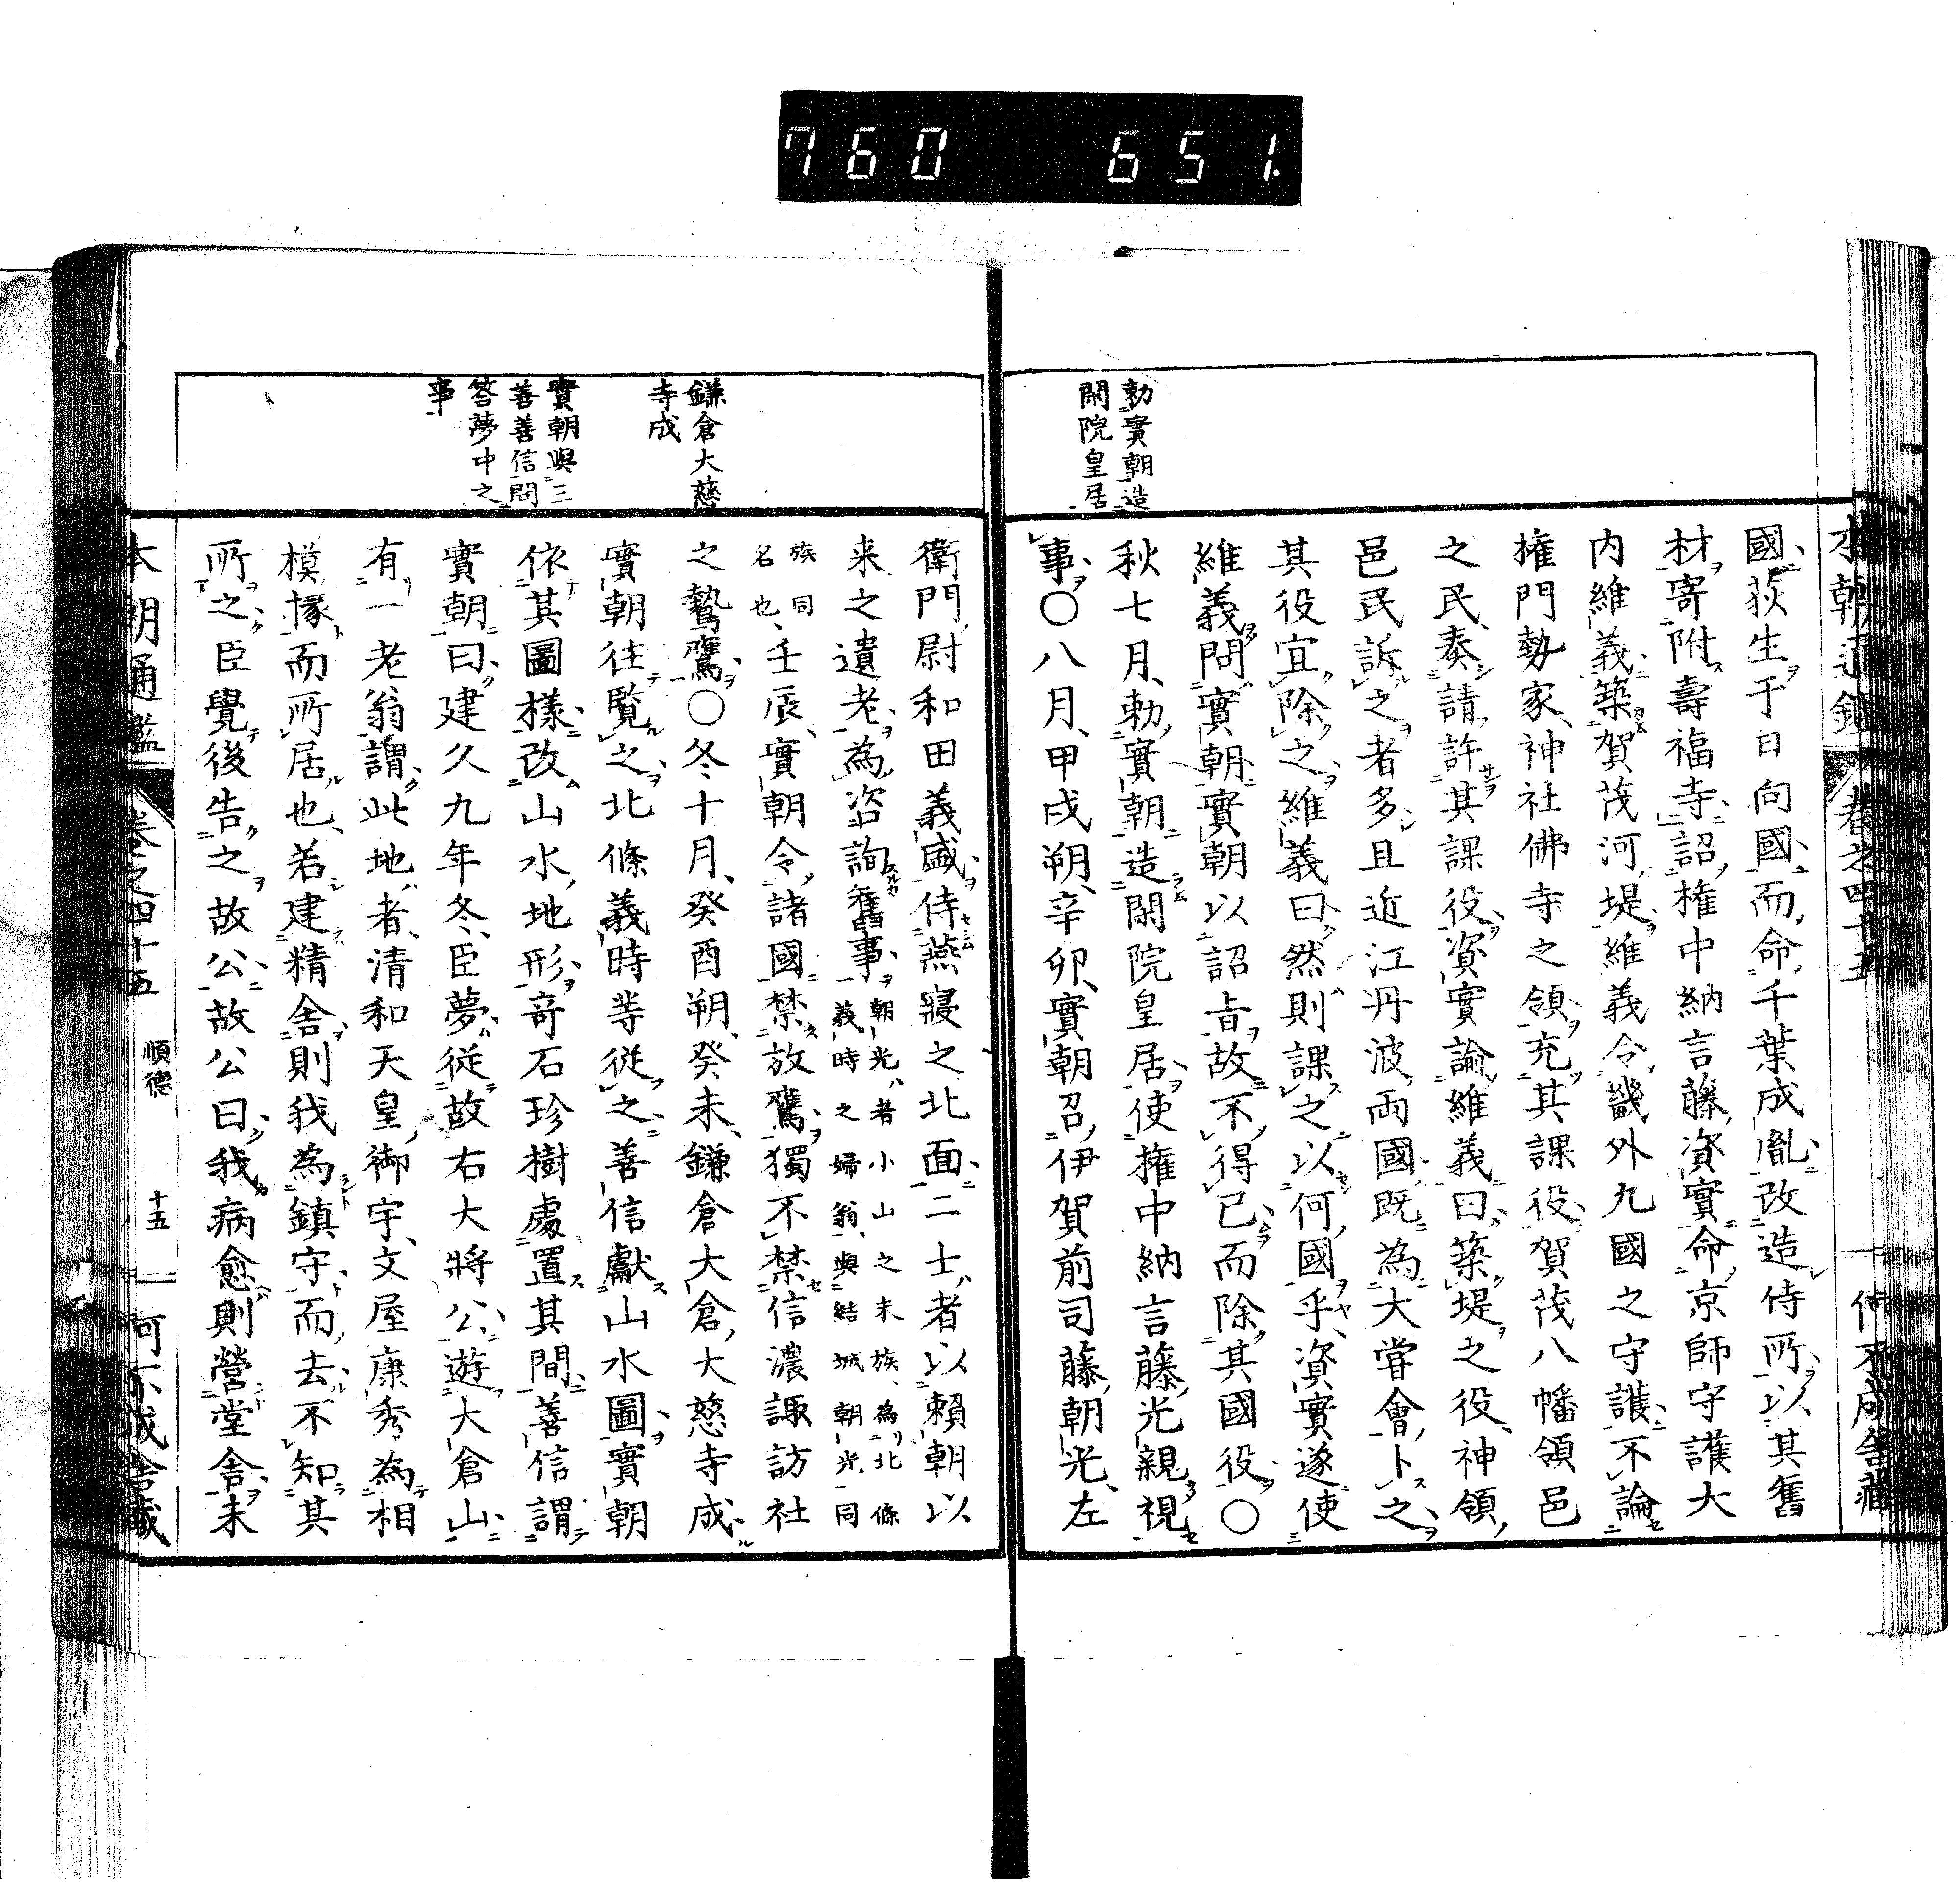 760 651.
本朝通鑑 卷之四十五 何不成舍藏
勅實朝造
閑院皇居
國荻生于日向國而命千葉成胤改造侍所以其舊
材寄附壽福寺詔權中納言藤資實命京師守護大
内維義築賀茂河堤維義令畿外九國之守護不論
權門勢家神社佛寺之領充其課役賀茂八幡領邑
之民奏請許其課役資實諭維義曰築堤之役神領
邑民訴之者多且近江丹波兩國既為大嘗會卜之
其役宜除之維義曰然則課之以何國乎資實遂使
維義問實朝實朝以詔旨故不得已而除其國役〇
秋七月勅實朝造閑院皇居使權中納言藤光親視
事〇八月甲戌朔辛卯實朝召伊賀前司藤朝光左
鎌倉大慈
寺成
實朝與三
善善信問
答夢中之
事
衛門尉和田義盛侍燕寢之北面二士者以賴朝以
来之遺老為咨詢舊事朝光者小山之末族為北條
義時之婦翁與結城朝光同
族同
名也壬辰實朝令諸國禁放鷹獨不禁信濃諏訪社
之贄鷹〇冬十月癸酉朔癸未鎌倉大倉大慈寺成
實朝往覧之北條義時等從之善信獻山水圖實朝
依其圖樣改山水地形奇石珍樹處置其間善信謂
實朝曰建久九年冬臣夢從故右大將公遊大倉山
有一老翁謂此地者清和天皇御宇文屋康秀為相
模掾而所居也若建精舍則我為鎮守而去不知其
所之臣覺後告之故公故公曰我病愈則營堂舍未
本朝通鑑 卷之四十五 順德 十五 何不成舍藏